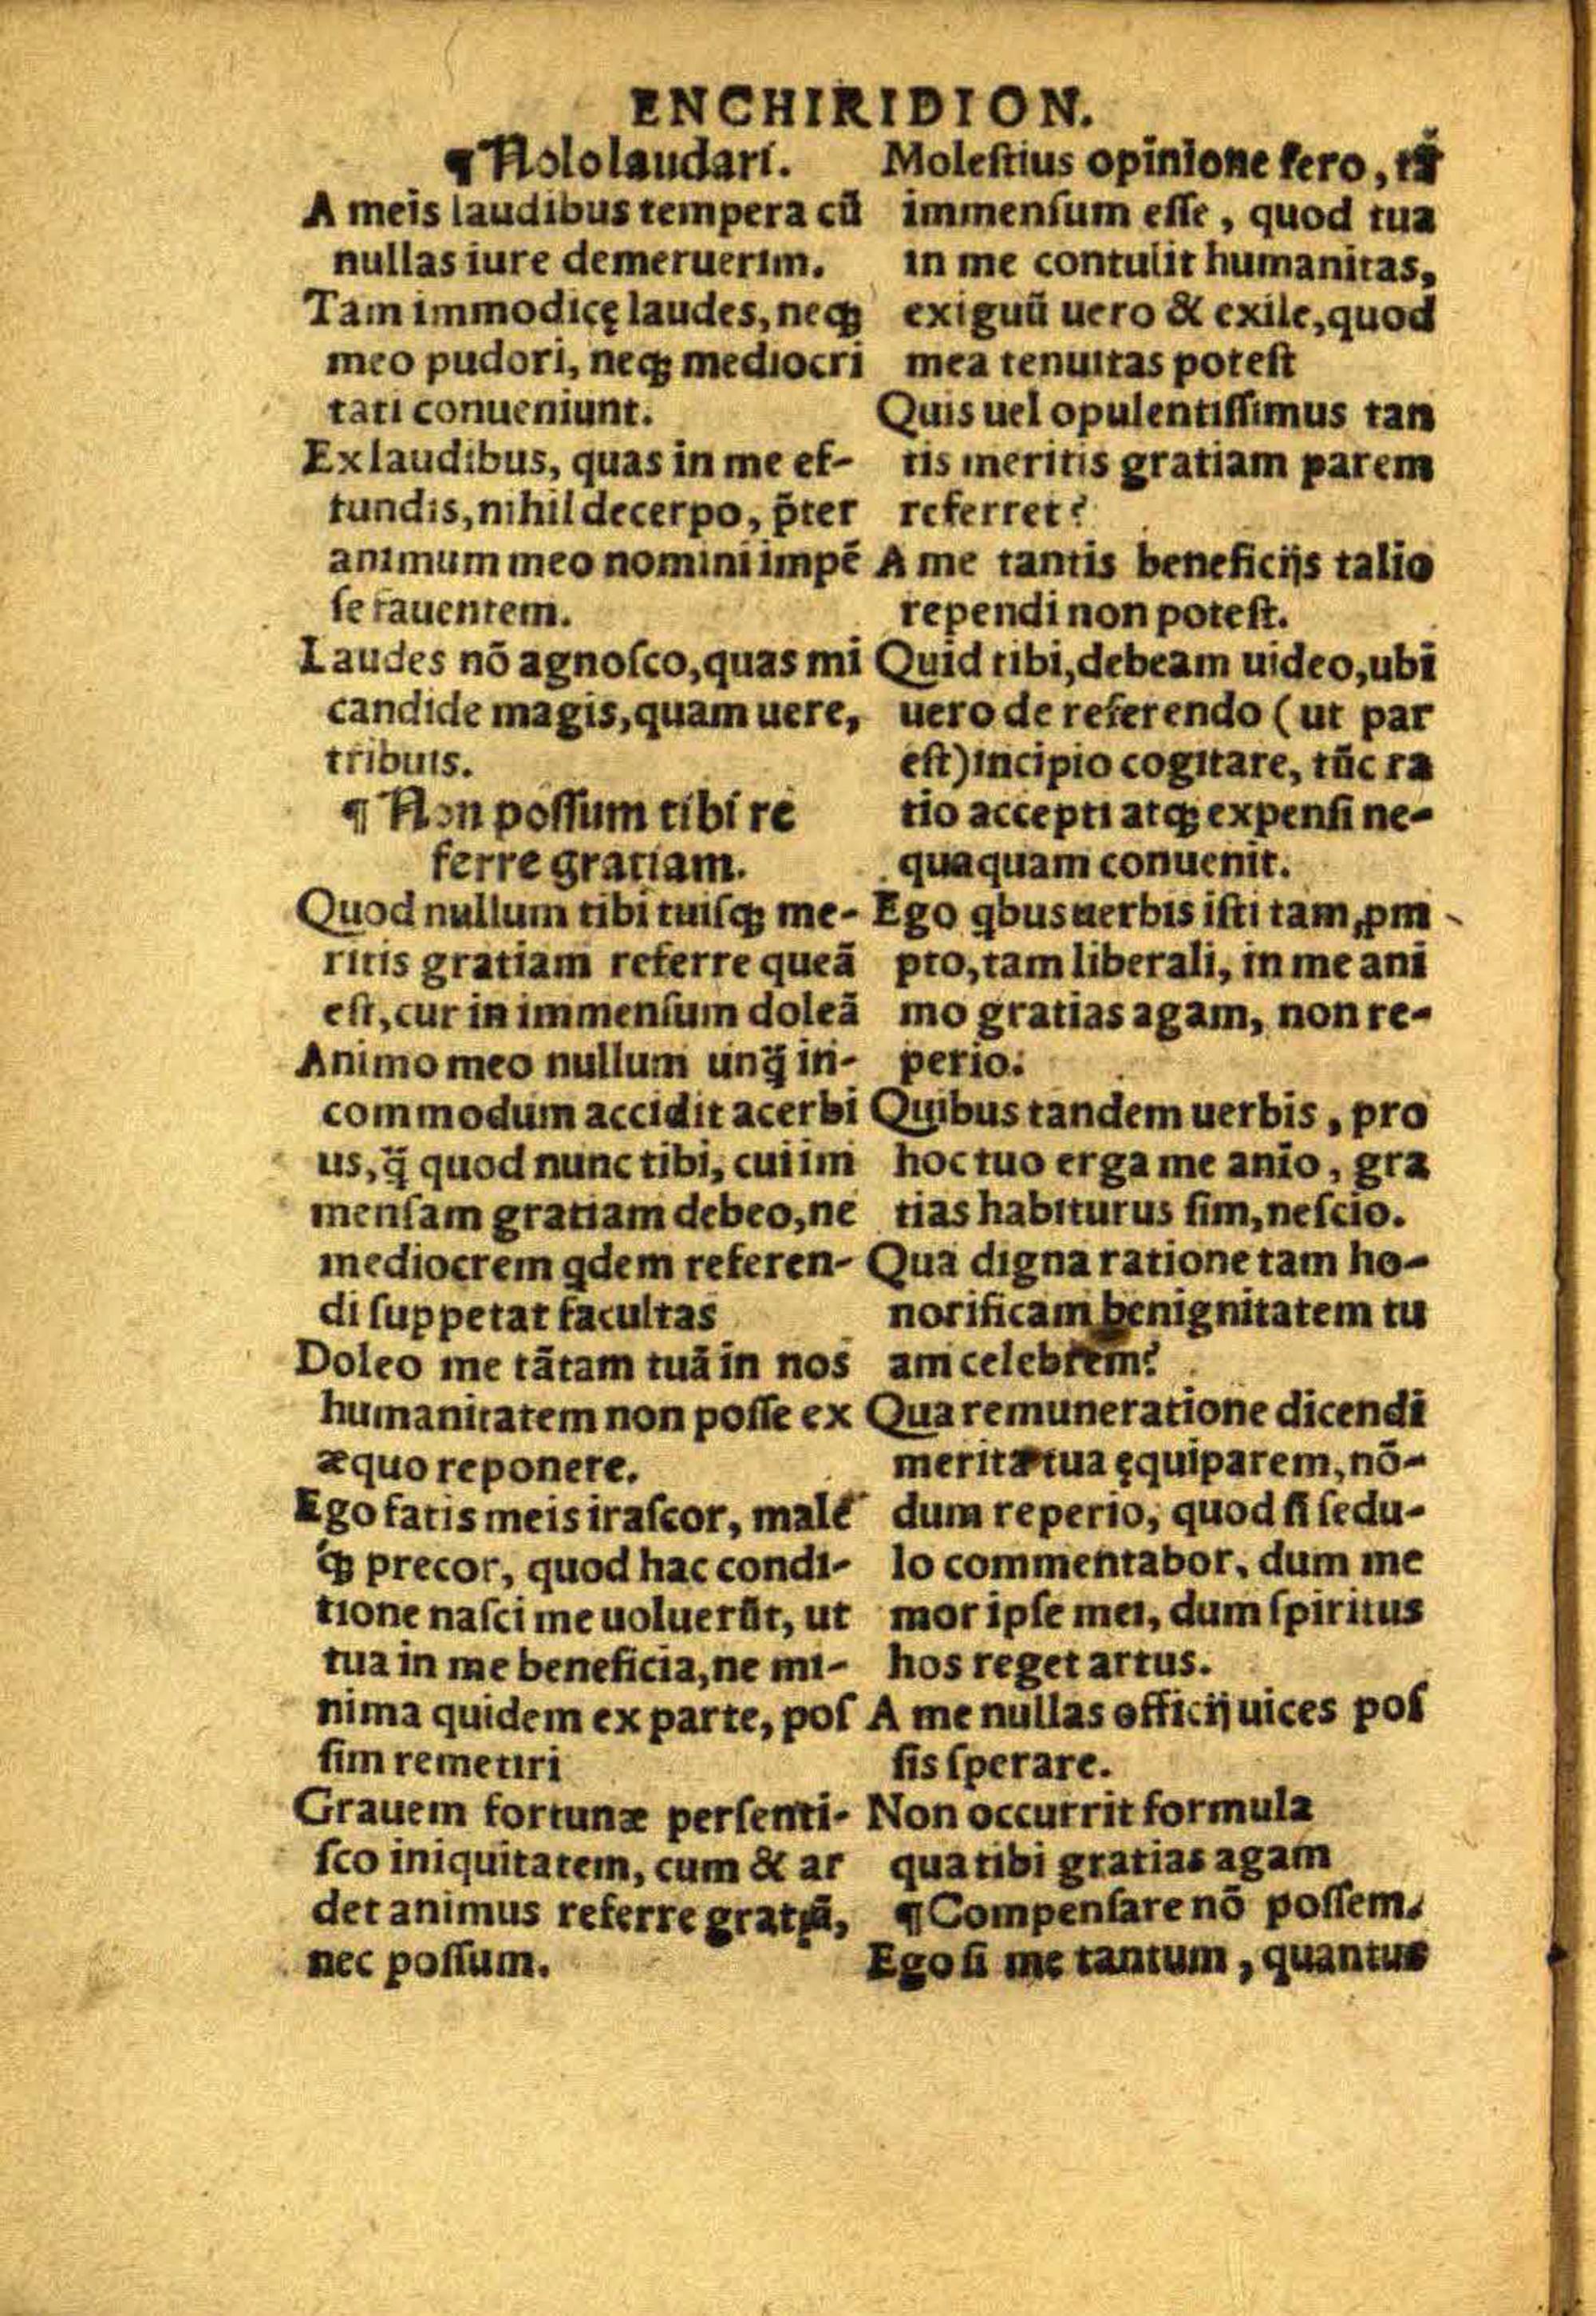 ENCHIRIDION.
¶ Nolo laudari.
A meis laudibus tempera cū
nullas iure demeruerim.
Tam immodicę laudes, neqꝫ
meo pudori, neqꝫ mediocri
tati conueniunt.
Ex laudibus, quas in me ef-
fundis, nihil decerpo, p̄ter
animum meo nomini impē
ſe fauentem.
Laudes nō agnoſco, quas mi
candide magis, quam uere,
tribuis.
¶ Non poſſum tibi re
ferre gratiam.
Quod nullum tibi tuiſqꝫ me-
ritis gratiam referre queā
eſt, cur in immenſum doleā
Animo meo nullum unq̄ in-
commodum accidit acerbi
us, q̄ quod nunc tibi, cui im
menſam gratiam debeo, ne
mediocrem qdem referen-
di ſuppetat facultas
Doleo me tātam tuā in nos
humanitatem non poſſe ex
æquo reponere.
Ego fatis meis iraſcor, male
qꝫ precor, quod hac condi-
tione naſci me uoluerūt, ut
tua in me beneficia, ne mi-
nima quidem ex parte, poſ
ſim remetiri
Grauem fortunæ perſenti-
ſco iniquitatem, cum & ar
det animus referre gratiā,
nec poſſum.
Moleſtius opinione fero, tā
immenſum eſſe, quod tua
in me contulit humanitas,
exiguū uero & exile, quod
mea tenuitas poteſt
Quis uel opulentiſſimus tan
tis meritis gratiam parem
referret?
A me tantis beneficijs talio
rependi non poteſt.
Quid tibi, debeam uideo, ubi
uero de referendo (ut par
eſt) incipio cogitare, tūc ra
tio accepti atqꝫ expenſi ne-
quaquam conuenit.
Ego qbus uerbis iſti tam ꝓm
pto, tam liberali, in me ani
mo gratias agam, non re-
perio.
Quibus tandem uerbis, pro
hoc tuo erga me anīo, gra
tias habiturus ſim, neſcio.
Qua digna ratione tam ho-
norificam benignitatem tu
am celebrem?
Qua remuneratione dicendi
merita tua ęquiparem, nō-
dum reperio, quod ſi ſedu-
lo commentabor, dum me
mor ipſe mei, dum ſpiritus
hos reget artus.
A me nullas officij uices poſ
ſis ſperare.
Non occurrit formula
qua tibi gratias agam
¶ Compenſare nō poſſem.
Ego ſi me tantum, quantus